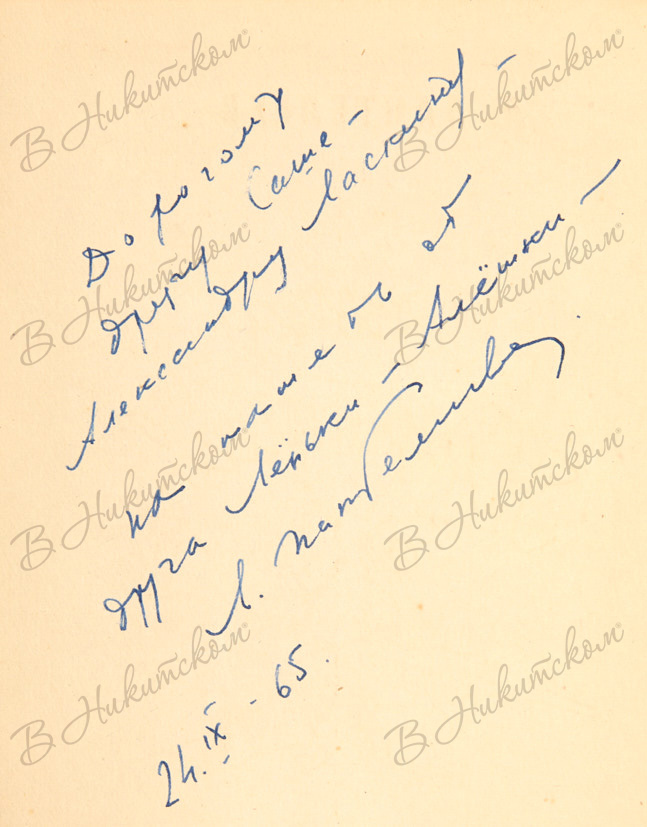 Дорогому
другу Саше –
Александру Ласкину –
на память от
друга Лёньки – Алёшки –
Л. Пантелеева.
24.IX - 65.
В Никитском
В Никитском
В Никитском
В Никитском
В Никитском
В Никитском
В Никитском
В Никитском